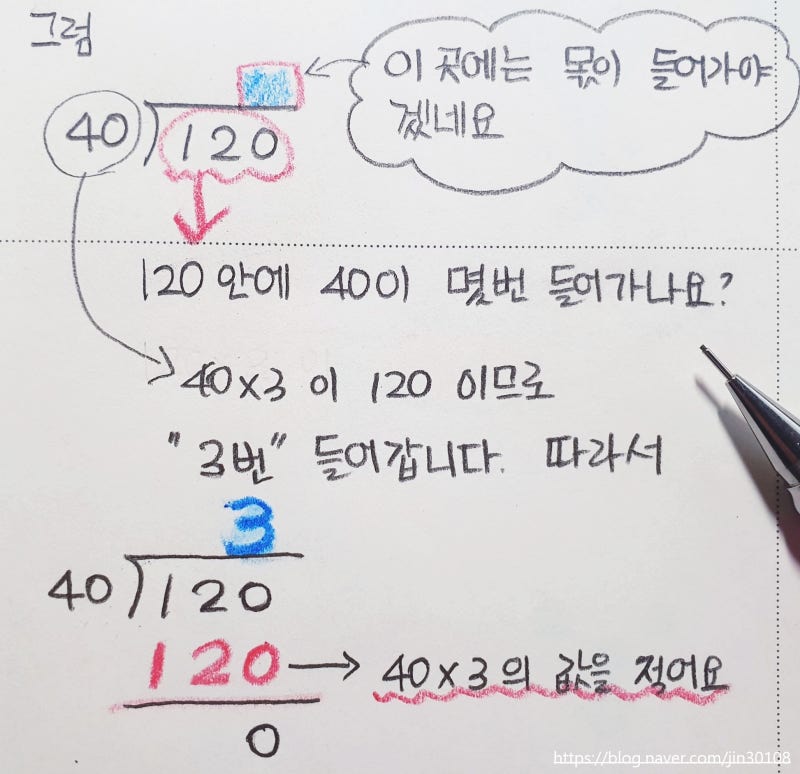 그럼
이 곳에는 몫이 들어가야
겠네요
40)120
120안에 40이 몇번 들어가나요?
40×3 이 120 이므로
"3번" 들어갑니다. 따라서
3
40)120
120 → 40×3의 값을 적어요
0
https://blog.naver.com/jin30108